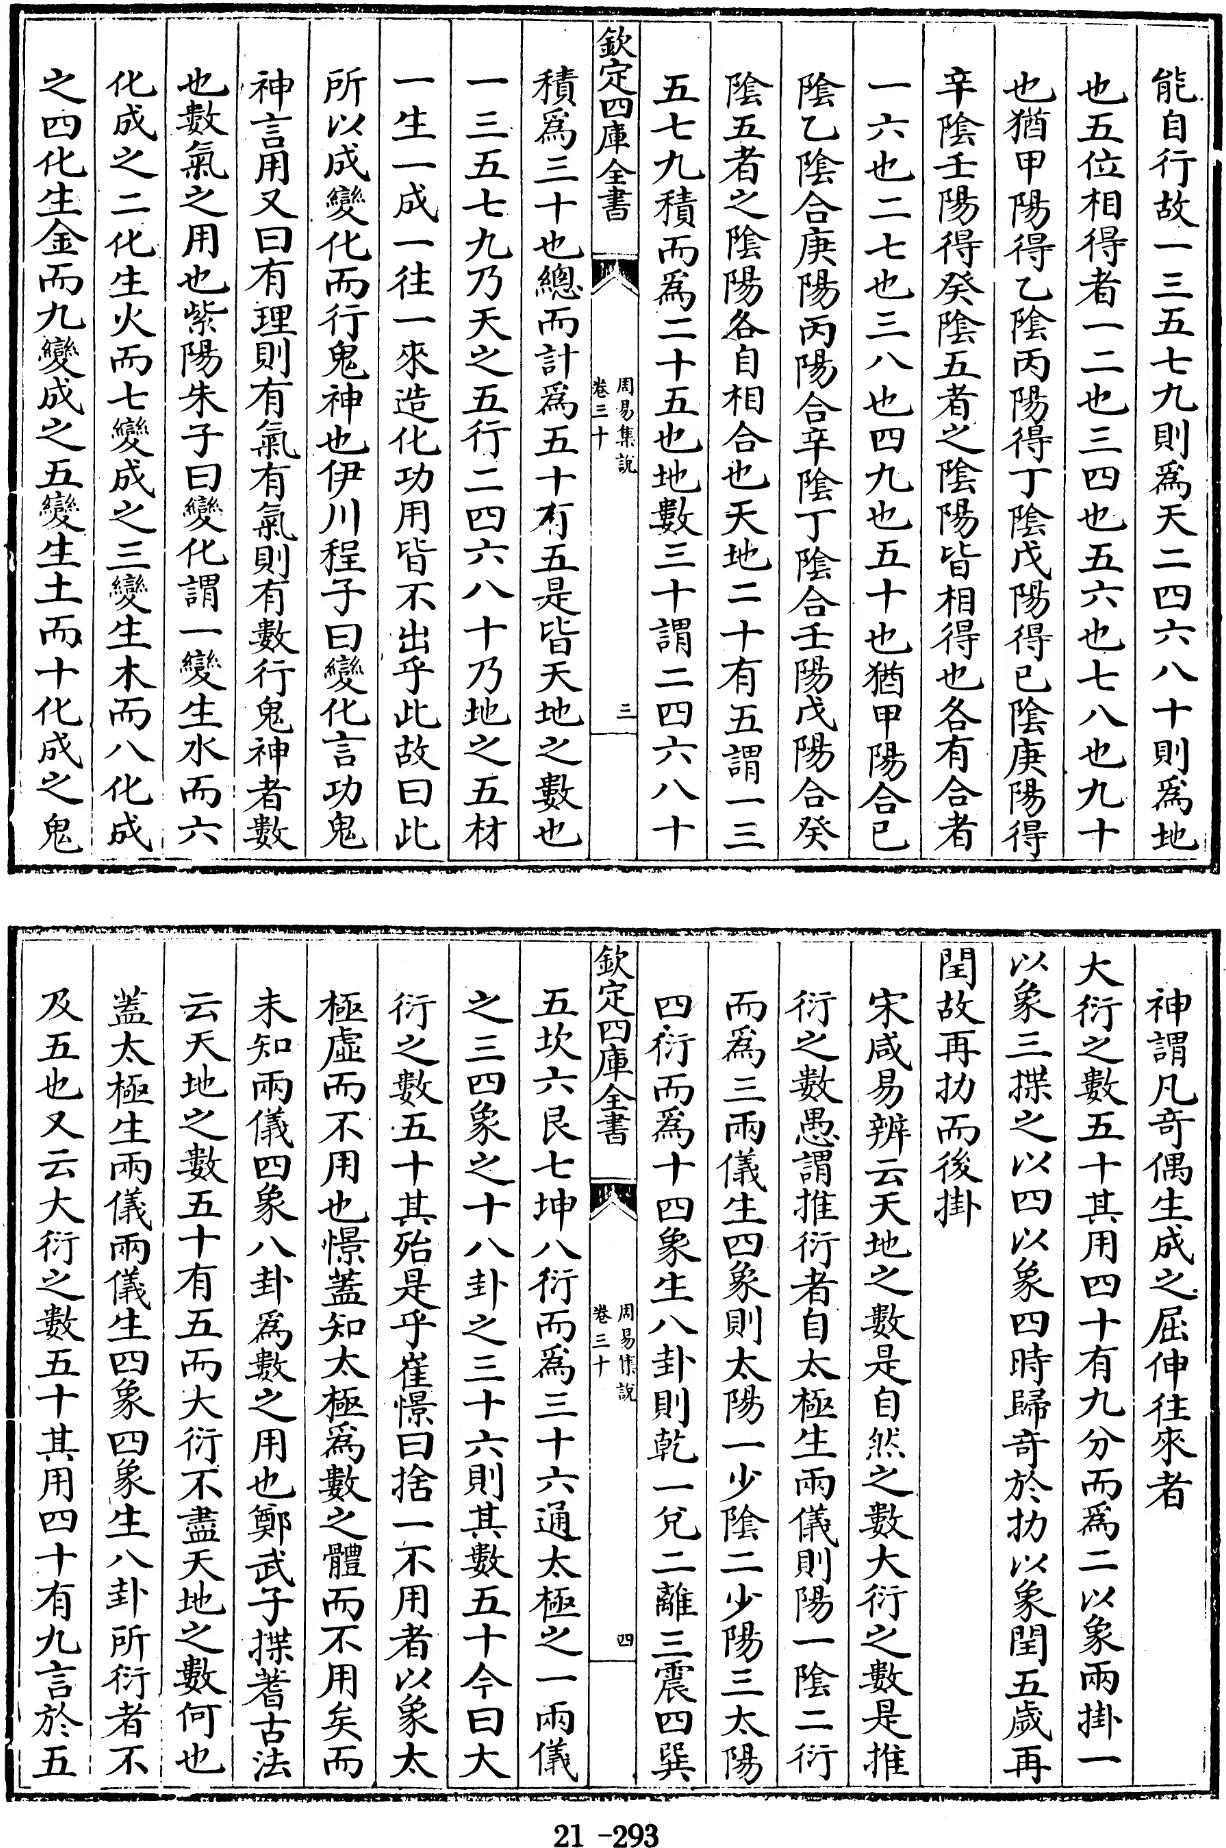 能自行故一三五七九則爲天二四六八十則爲地
也五位相得者一二也三四也五六也七八也九十
也猶甲陽得乙陰丙陽得丁陰戊陽得已陰庚陽得
辛陰壬陽得癸陰五者之陰陽皆相得也各有合者
一六也二七也三八也四九也五十也猶甲陽合已
陰乙陰合庚陽丙陽合辛陰丁陰合壬陽戊陽合癸
陰五者之陰陽各自相合也天地二十有五謂一三
五七九積而爲二十五也地數三十謂二四六八十
欽定四庫全書
周易集說
卷三十
三
積爲三十也總而計爲五十有五是皆天地之數也
一三五七九乃天之五行二四六八十乃地之五材
一生一成一往一來造化功用皆不出乎此故曰此
所以成變化而行鬼神也伊川程子曰變化言功鬼
神言用又曰有理則有氣有氣則有數行鬼神者數
也數氣之用也紫陽朱子曰變化謂一變生水而六
化成之二化生火而七變成之三變生木而八化成
之四化生金而九變成之五變生土而十化成之鬼
神謂凡奇偶生成之屈伸往來者
大衍之數五十其用四十有九分而爲二以象兩掛一
以象三揲之以四以象四時歸奇於扐以象閏五歲再
閏故再扐而後掛
宋咸易辨云天地之數是自然之數大衍之數是推
衍之數愚謂推衍者自太極生兩儀則陽一陰二衍
而爲三兩儀生四象則太陽一少陰二少陽三太陽
四衍而爲十四象生八卦則乾一兌二離三震四巽
欽定四庫全書
周易集說
卷三十
四
五坎六艮七坤八衍而爲三十六通太極之一兩儀
之三四象之十八卦之三十六則其數五十今曰大
衍之數五十其殆是乎崔憬曰捨一不用者以象太
極虛而不用也憬蓋知太極爲數之體而不用矣而
未知兩儀四象八卦爲數之用也鄭武子揲蓍古法
云天地之數五十有五而大衍不盡天地之數何也
蓋太極生兩儀兩儀生四象四象生八卦所衍者不
及五也又云大衍之數五十其用四十有九言於五
21-293